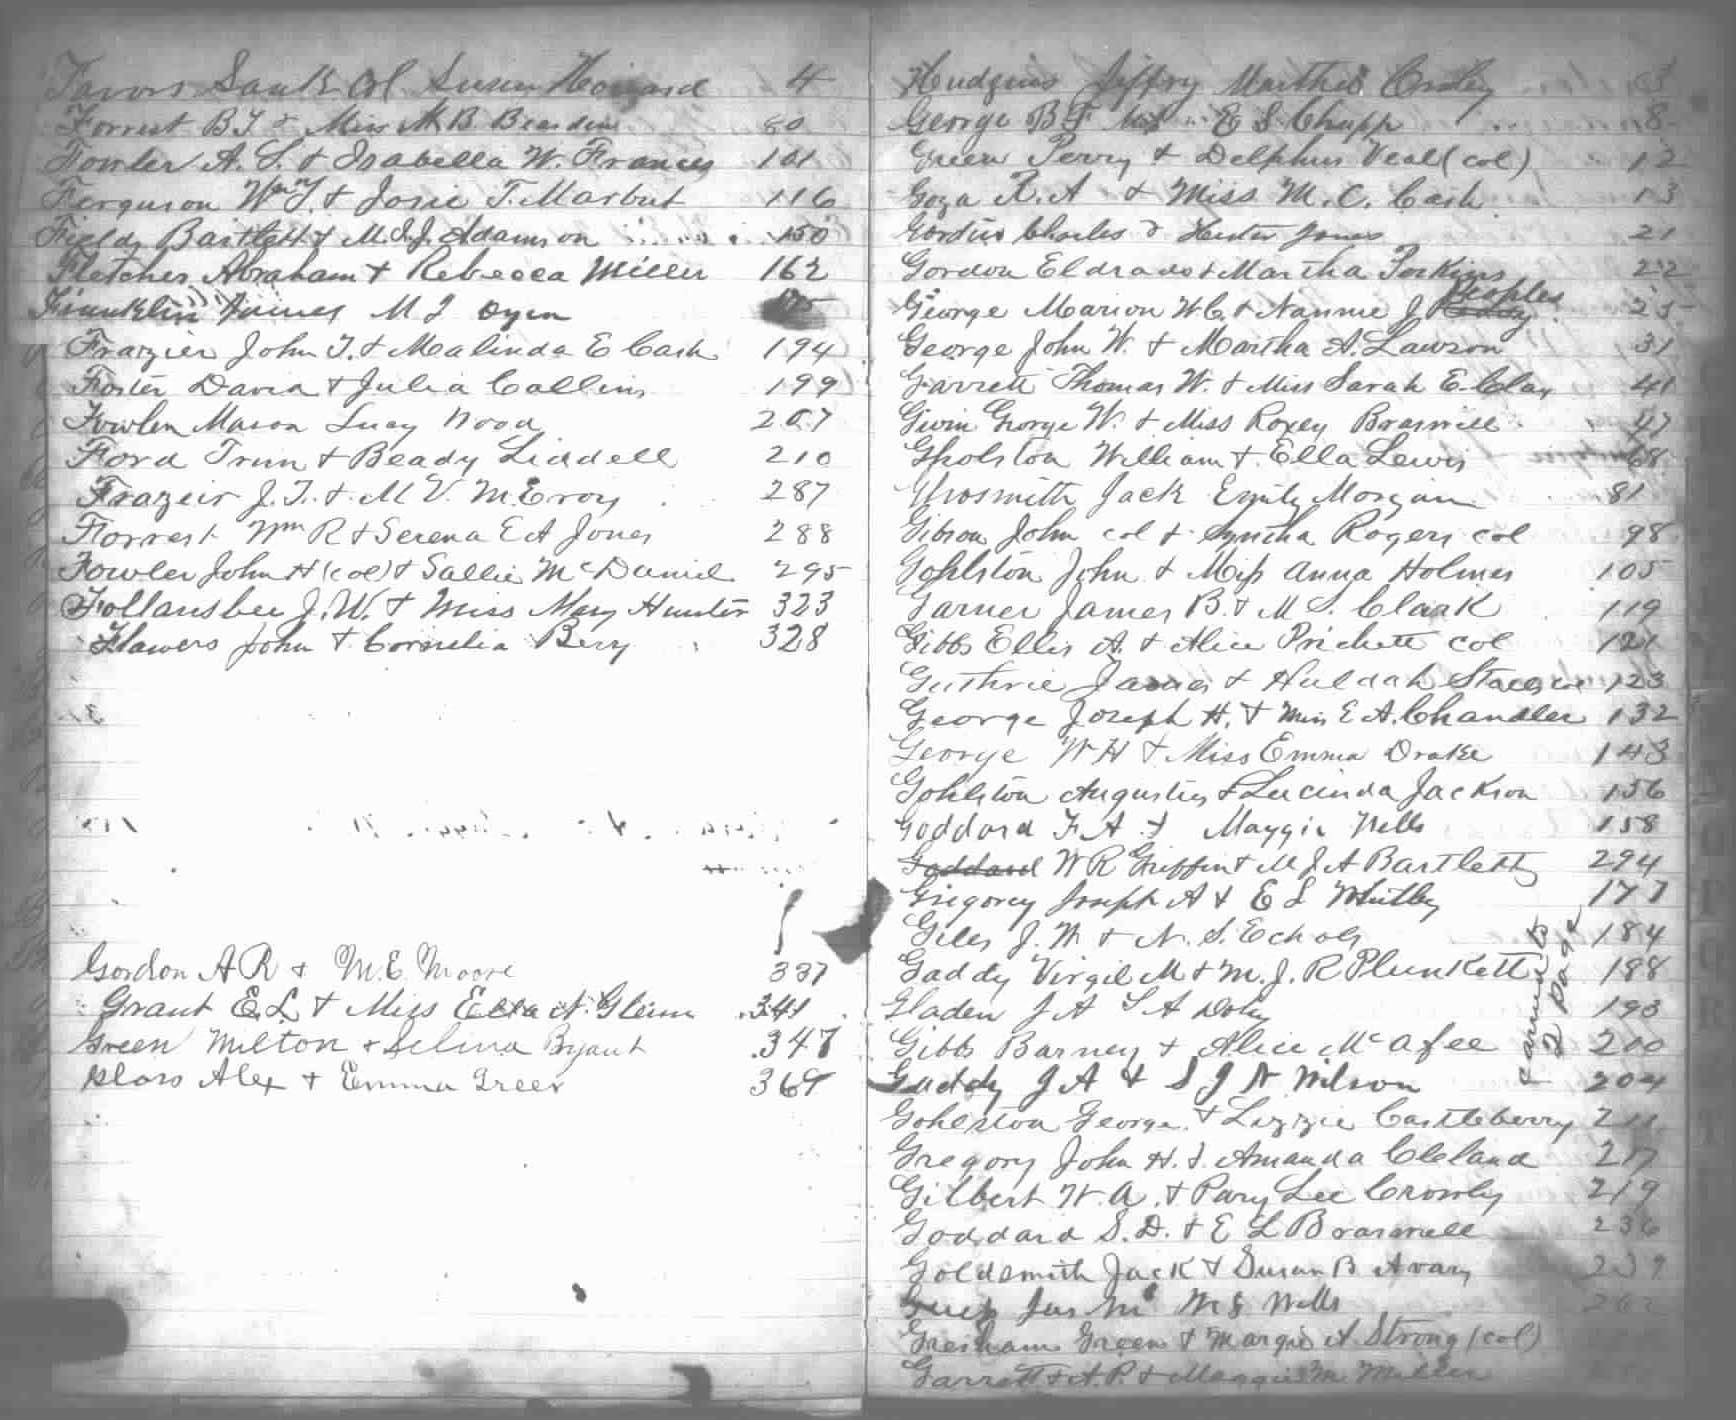 Favors Sank Col Susan Howard 4
Forrest B T & Miss M B Bearden 80
Fowler A. S. & Isabella W. Frances 101
Ferguson Wm T. & Josie T. Marbut 116
Fields Bartlett & M. I. J. Adamson 150
Fletcher Abraham & Rebecca Miller 162
Franklin James M J
Frazier John T. & Malinda E Cash 194
Foster David & Julia Collins 199
Fowler Mason Lucy Wood 207
Ford Trim & Beady Liddell 210
Frazeir J. T. & M V. McEroy 287
Forrest Wm R & Serena E A Jones 288
Fowler John H (col) & Sallie McDaniel 295
Follansbee J. W. & Miss Mary Hunter 323
Flowers John & Cornelia Berry 328
Gordon A R & M. E Moore 337
Grant E. L & Miss Ella N. Glenn 341
Green Milton & Selina Bryant 347
Alex & Emma Greer 369
Hudgins Jeffry Martha 3
George B F Miss E S. Chupp 8
Green Perry & Delphus Veal (col) 12
Goza R. A & Miss M. C. Cash 13
Charles & Hester Jones 21
Gordon Eldrado & Martha Perkins 22
George Marion W C. & Nannie J Peoples 25
George John W. & Martha A. Lawson 31
Garrett Thomas W. & Miss Sarah E. Clay 41
Givin George W. & Miss Roxey Braswell 47
Gholston William & Ella Lewis 68
Jack Emily Morgan 81
Gibson John col & Syntha Rogers col 98
Gohlston John & Miss Anna Holmes 105
Garner James B. & M S. Clark 119
Gibbs Ellis A. & Alice Prichett col 121
Guthrie James & Huldah col 123
George Joseph H. & Miss E A. Chandler 132
George W H & Miss Emma Drake 143
Gohlston Augustus & Lucinda Jackson 156
Goddard F A & Maggie Wells 158
Goddard W R Griffin & M J A Bartlett 294
Grigorey Joseph A & E L Whitley 177
Giles J. W & N. S. Echols 184
Gaddy Virgil M & M. J. R Plunkett 188
Gladen J A S A 193
Gibbs Barney & Alice McAfee 200
Gaddy J A & S J N Wilson 204
2 page
Gohlston George & Lizzie Castleberry 211
Gregory John H. & Amanda Cleland 217
Gilbert W. A. & Pary Lee Crowly 219
Goddard S. D. & E L Braswell 236
Goldsmith Jack & Susan B Avary 239
Jas M Wells
Gresham Green & Margie A. Strong (col)
Garrett A. P. & Maggie M Miller